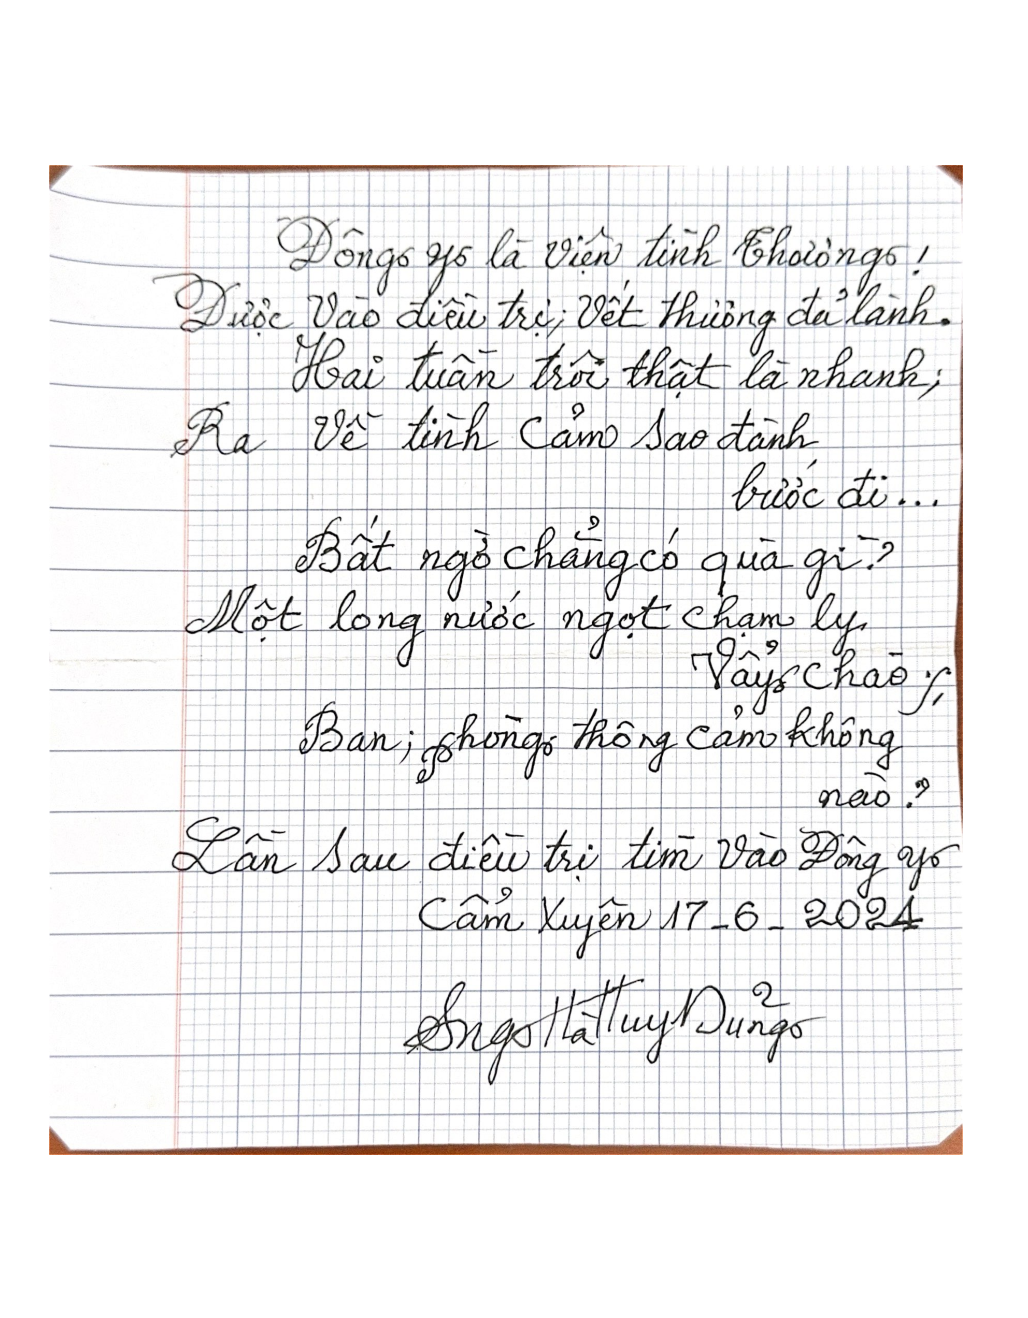 Đông y là viện tình thương!
Được vào điều trị; vết thương đả lành.
Hai tuần trôi thật là nhanh;
Ra về tình cảm sao đành
bước đi...
Bất ngờ chẳng có quà gì?
Một long nước ngọt chạm ly
Vẩy chào;
Ban; phòng thông cảm không
nào?
Lần sau điều trị tìm vào Đông y
Cẩm Xuyên 17-6-2024
Hà Huy Dủng